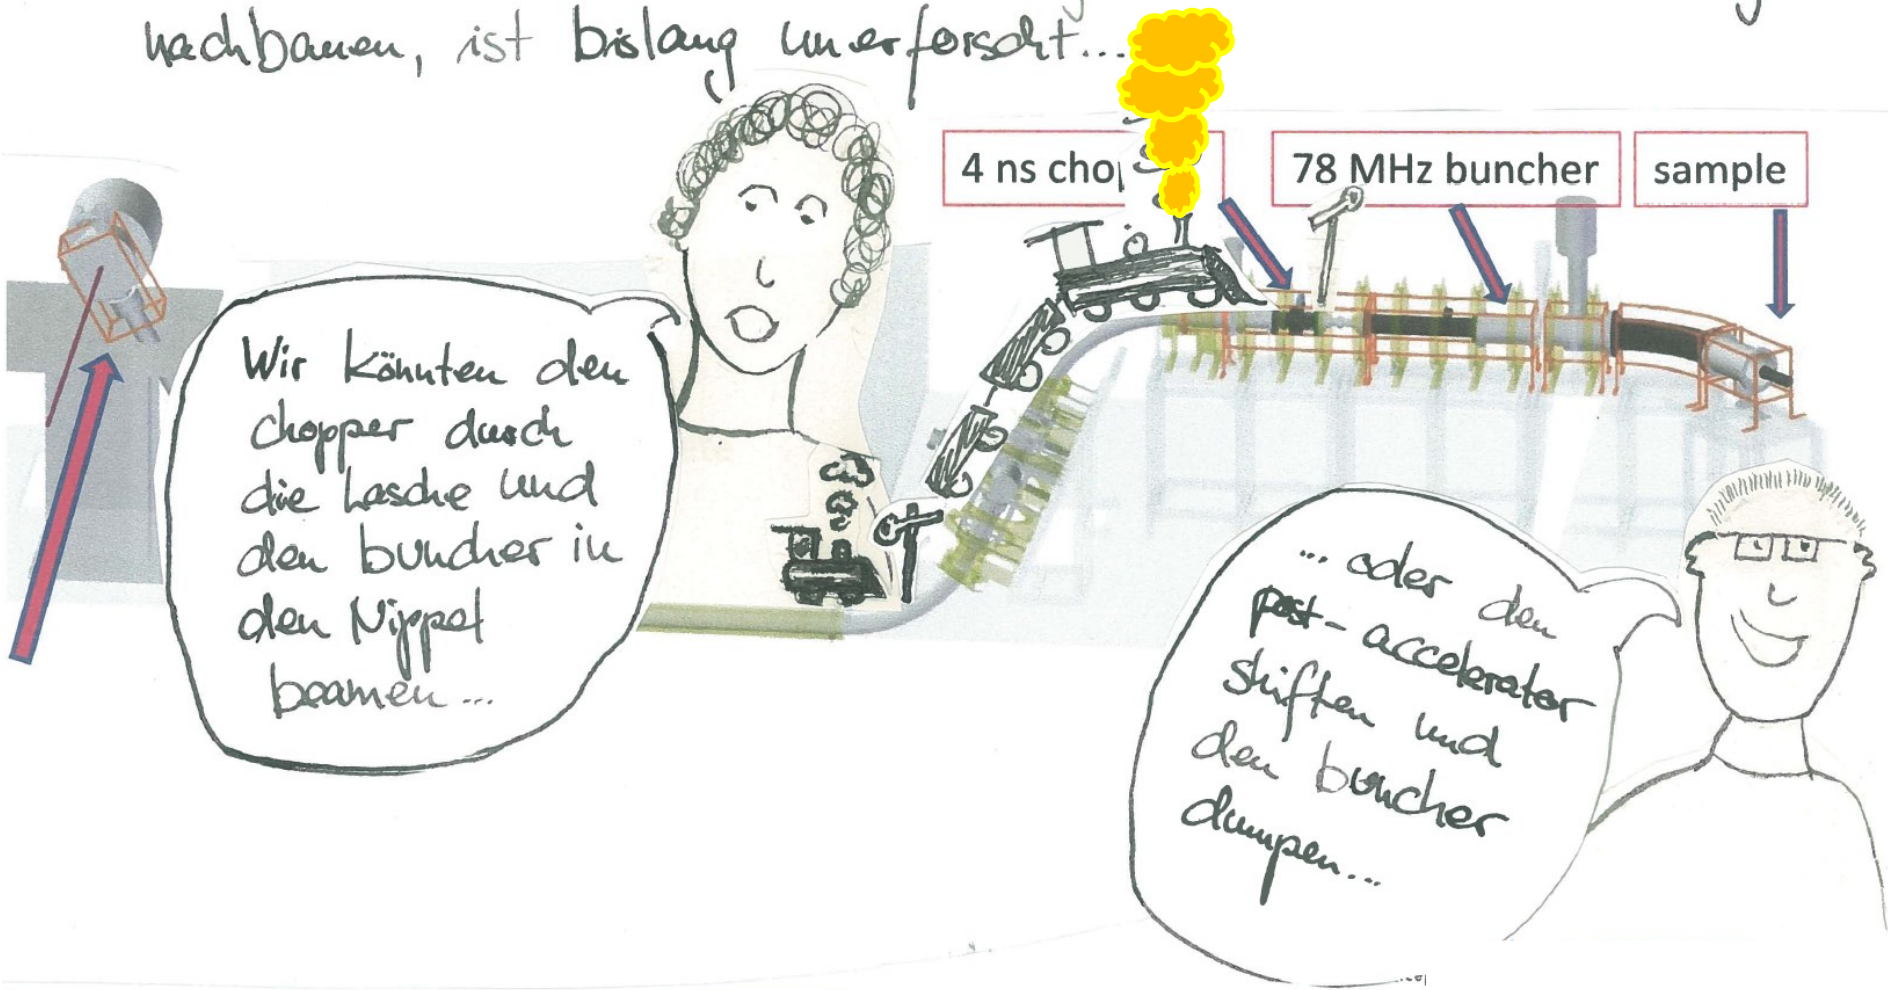 nachbauen, ist bislang unerforscht...
4 ns cho
78 MHz buncher
sample
Wir könnten den
chopper durch
die Lasche und
den buncher in
den Nippel
beamen...
... oder den
post-accelerator
shiften und
den buncher
dumpen...